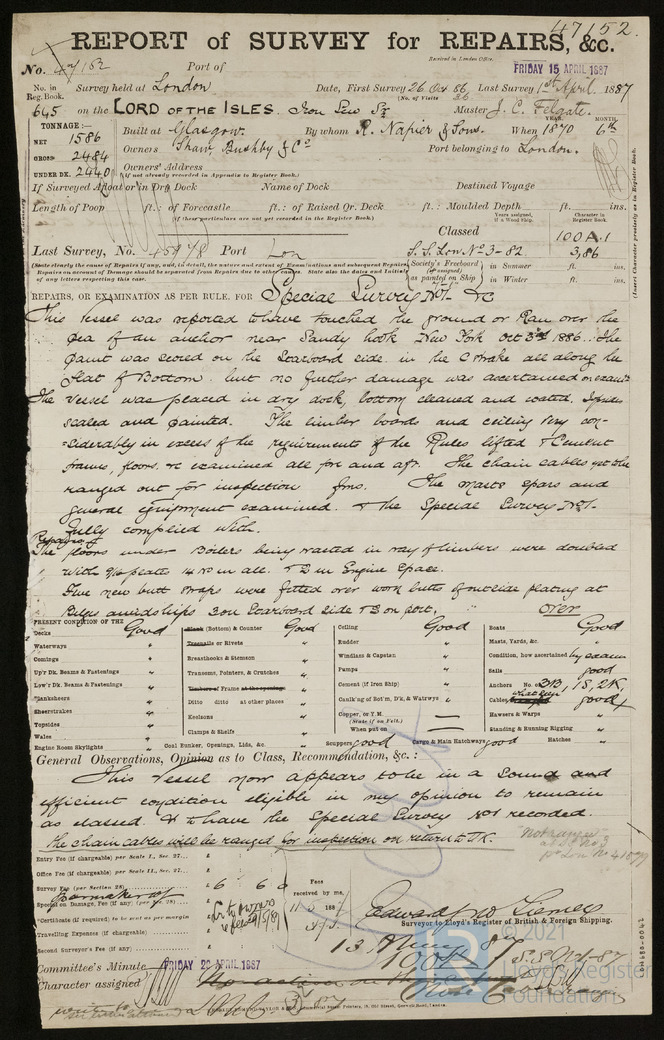 47152.
REPORT of SURVEY for REPAIRS, &c.
Received in London Office.
No. 47152 Port of FRIDAY 15 APRIL 1887
No. in Reg. Book. Survey held at London Date, First Survey 26 Oct 86, Last Survey 1st April 1887
(No. of Visits 36
645 on the LORD OF THE ISLES. Iron Scw Sr Master J. C. Felgate.
TONNAGE:— YEAR. MONTH.
NET 1586 Built at Glasgow. By whom R. Napier & Sons. When 1870 6th
GROSS 2484 Owners Shaw, Bushby & Co Port belonging to London.
UNDER DK. 2440 Owners' Address
(if not already recorded in Appendix to Register Book.)
If Surveyed Afloat or in Dry Dock Name of Dock Destined Voyage
Length of Poop ft.: of Forecastle ft.: of Raised Qr. Deck ft.: Moulded Depth ft. ins.
(If these particulars are not yet recorded in the Register Book.)
Years assigned, if a Wood Ship. Character in Register Book.
Classed 100A.1
Last Survey, No. 45978 Port Lon S.S. Lon. No 3-82. 3,86
Society's Freeboard (if assigned) as painted on Ship in Summer ft. ins.
in Winter ft. ins.
(Insert Character precisely as in Register Book.)
REPAIRS, OR EXAMINATION AS PER RULE, FOR Special Survey No1. &c
This Vessel was reported to have touched the ground or Ran over the
pea of an anchor near Sandy hook New York Oct 3rd 1886. The
paint was scored on the Starboard side in the C strake all along the
flat of Bottom but no further damage was ascertained on examn
The vessel was placed in dry dock, bottom cleaned and coated. Insides
scaled and painted. The limber boards and ceiling very con-
=siderably in excess of the requirements of the Rules lifted & Cement
frames, floors. &c examined all fore and aft. The chain cables yet to be
ranged out for inspection. The masts spars and
general equipment examined. & the Special Survey No1.
fully complied with.
Repairs:-
The floors under Boilers being wasted in way of limbers were doubled
with 9/16 plates 14 No in all. & 2 in Engine Space.
Five new butt straps were fitted over work butts of outside plating at
Bilges amidships 3 on Starboard Side & 3 on port. over
PRESENT CONDITION OF THE
Decks Good
Waterways "
Comings "
Up'r Dk. Beams & Fastenings "
Low'r Dk. Beams & Fastenings "
Planksheers "
Sheerstrakes "
Topsides "
Wales "
Engine Room Skylights "
Plank (Bottom) & Counter Good
Treenails or Rivets "
Breasthooks & Stemson "
Transoms, Pointers, & Crutches "
Timbers or Frame at the openings "
Ditto ditto at other places "
Keelsons "
Clamps & Shelfs "
Coal Bunker, Openings, Lids, &c. "
Ceiling Good
Rudder "
Windlass & Capstan "
Pumps "
Cement (if Iron Ship) "
Caulk'ng of Bot'm, D'k, & Waterws "
Copper, or Y M.
(State if on Felt.)
When put on
Scuppers good Cargo & Main Hatchways good
Boats Good
Masts, Yards, &c. "
Condition, how ascertained by exam
Sails good
Anchors No. 3B, 1S, 2K,
Cables good
Hawsers & Warps "
Standing & Running Rigging "
Hatches "
General Observations, Opinion as to Class, Recommendation, &c. :
This Vessel now appears to be in a Sound and
efficient condition eligible in my opinion to remain
as classed. & to have the Special Survey No1 recorded.
The chain cables will be ranged for inspection on return to UK.
Entry Fee (if chargeable) per Scale I., Sec. 27...
Office Fee (if chargeable) per Scale II., Sec. 27...
Survey Fee (per Section 28) 6 6 0
Special or Damage Fee, if any (per Sec. 28)...
*Certificate (if required) to be sent as per margin
Travelling Expenses (if chargeable)
Second Surveyor's Fee (if any)
Fees received by me,
Surveyor to Lloyd's Register of British & Foreign Shipping.
Committee's Minute FRIDAY 22 APRIL 1887
Character assigned
© 2021
Lloyd's Register
Foundation